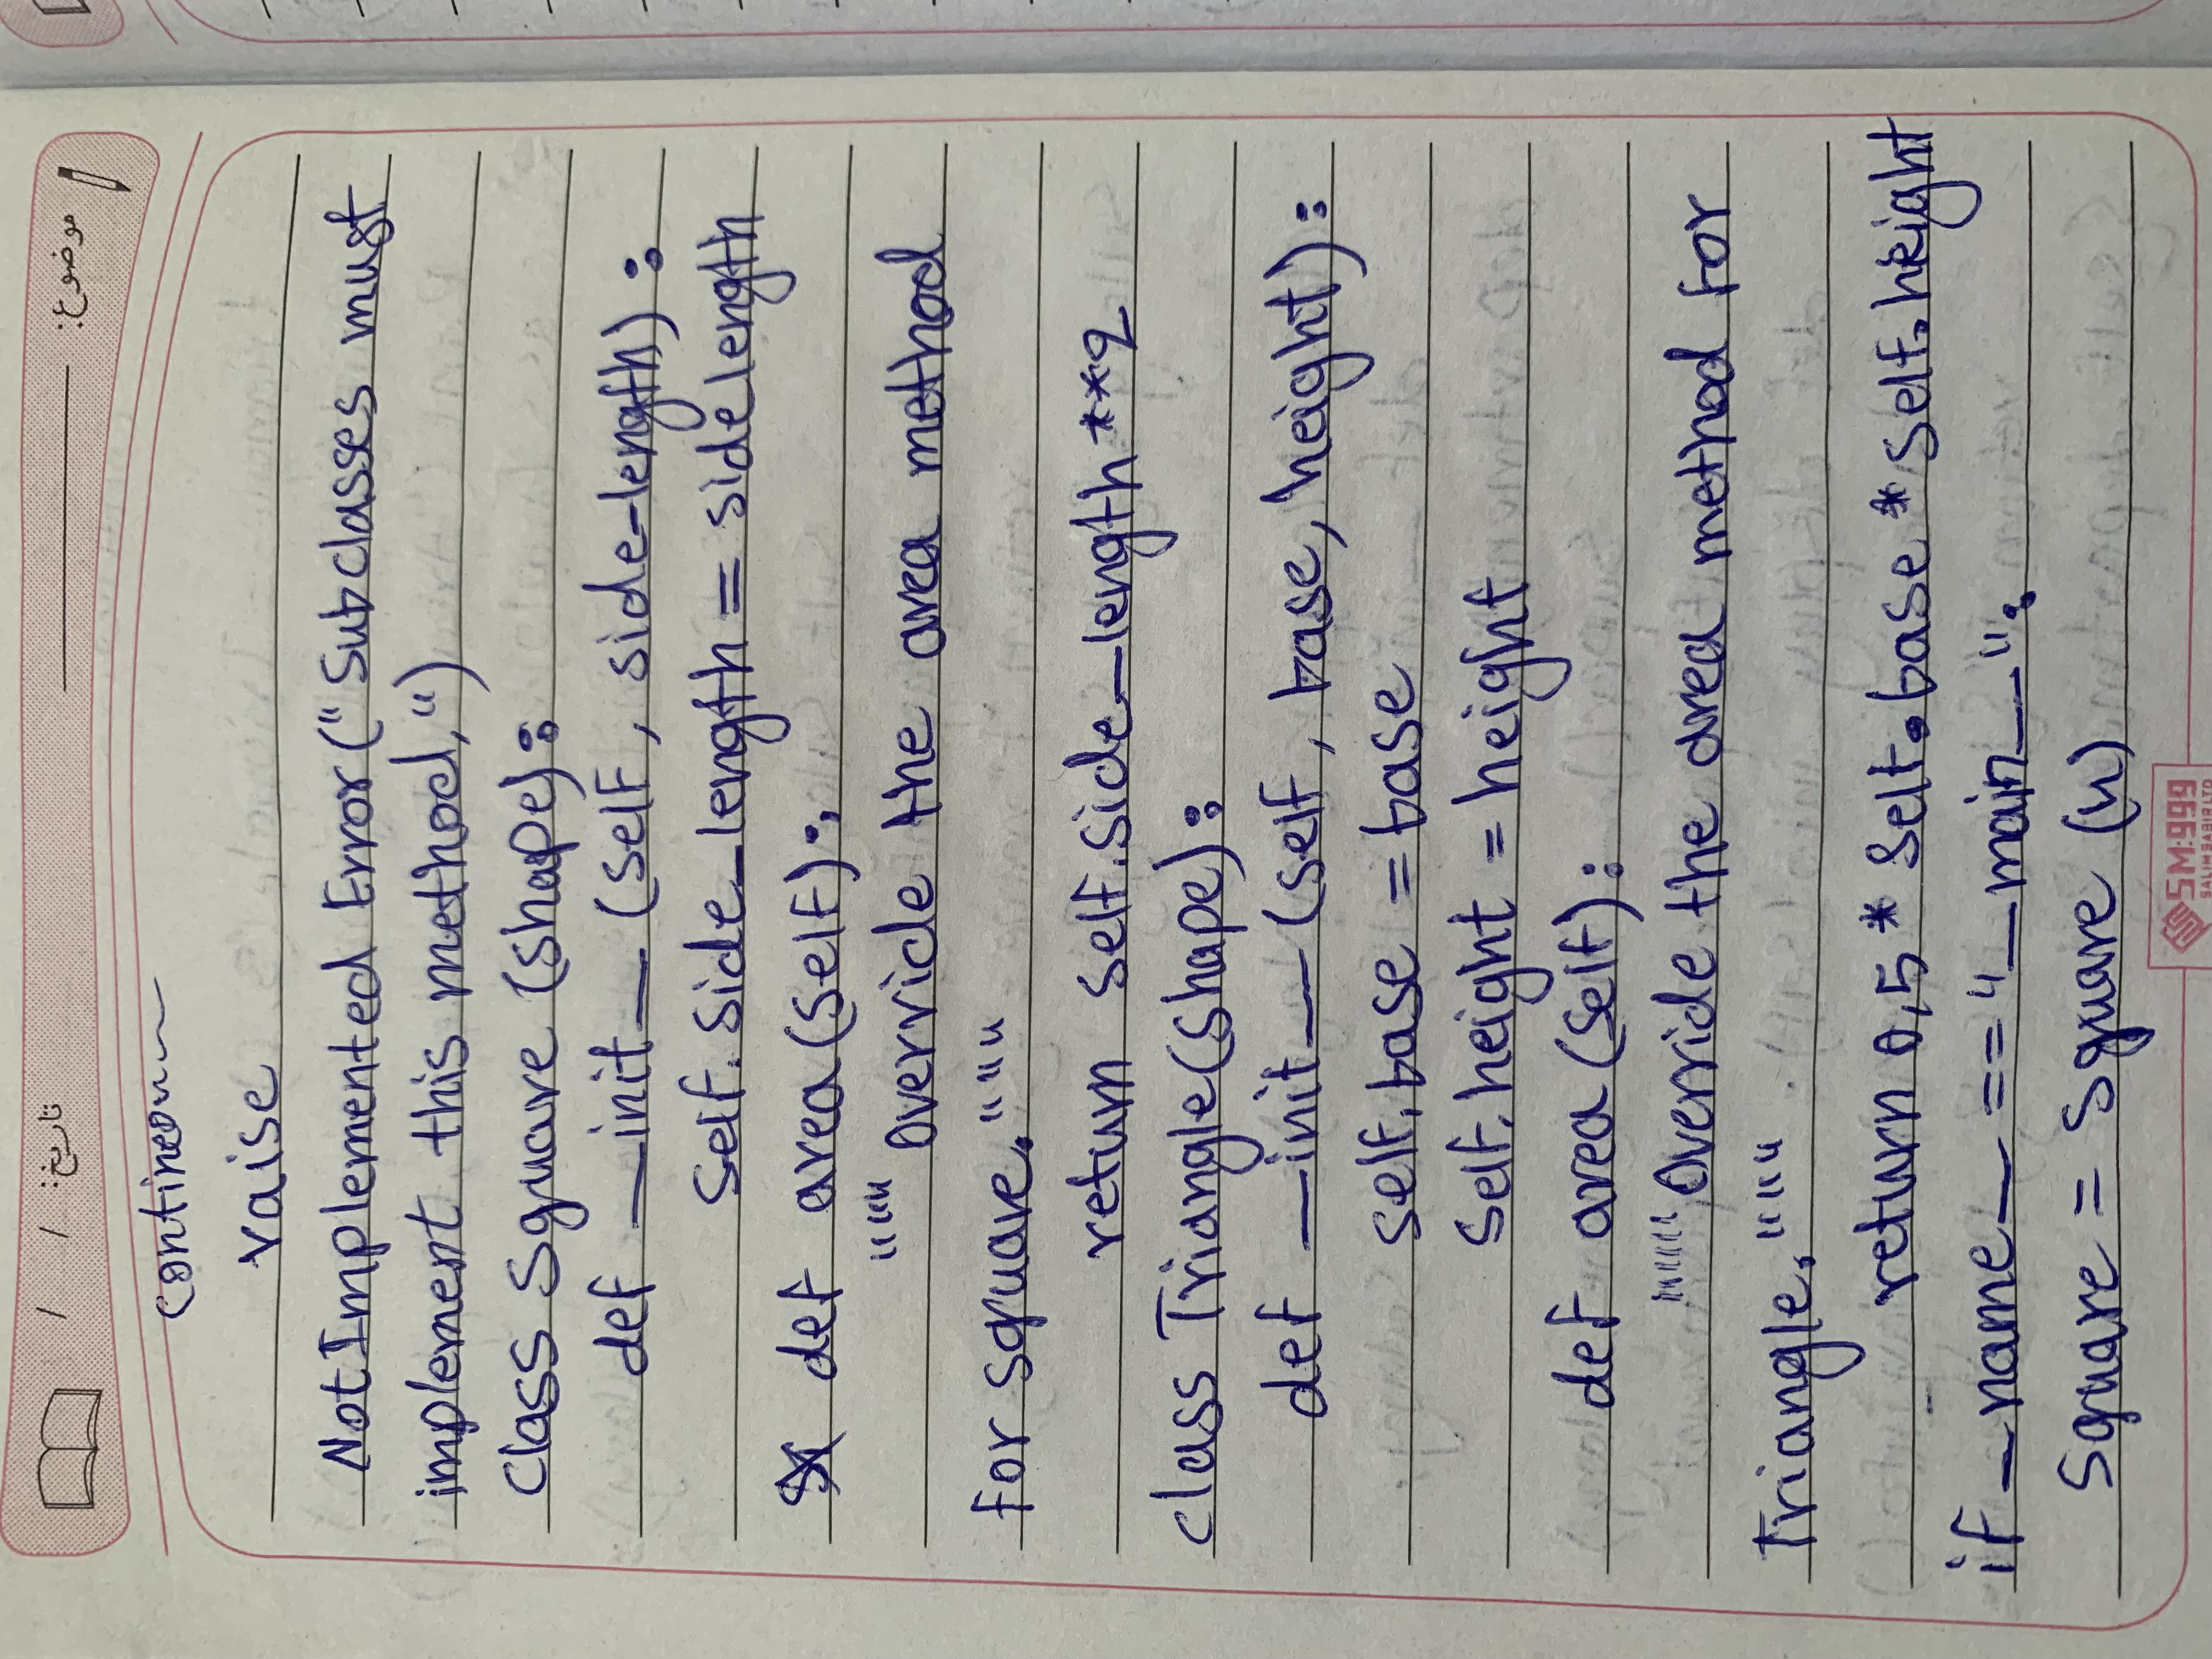 موضوع: تاريخ: / /
raise
NotImplemented Error("Subclasses must
implement this method,")
class Square (shape):
def __init__ (self, side_length):
self. side_length = sidelength
def area (self):
"""Override the area method
for square."""
return self.side_length **2
class Triangle (shape):
def __init__ (self, base, height):
self.base = base
self.height = height
def area (self):
"""Override the area method for
Triangle."""
return 0,5 * self.base * self.height
if __name__ == "__main__":
Square = Square (4)
SM:999
SALIM SABIR LTD